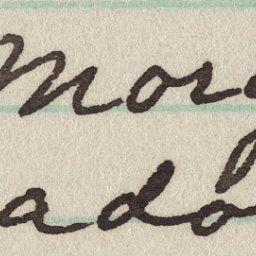 Morg
ado